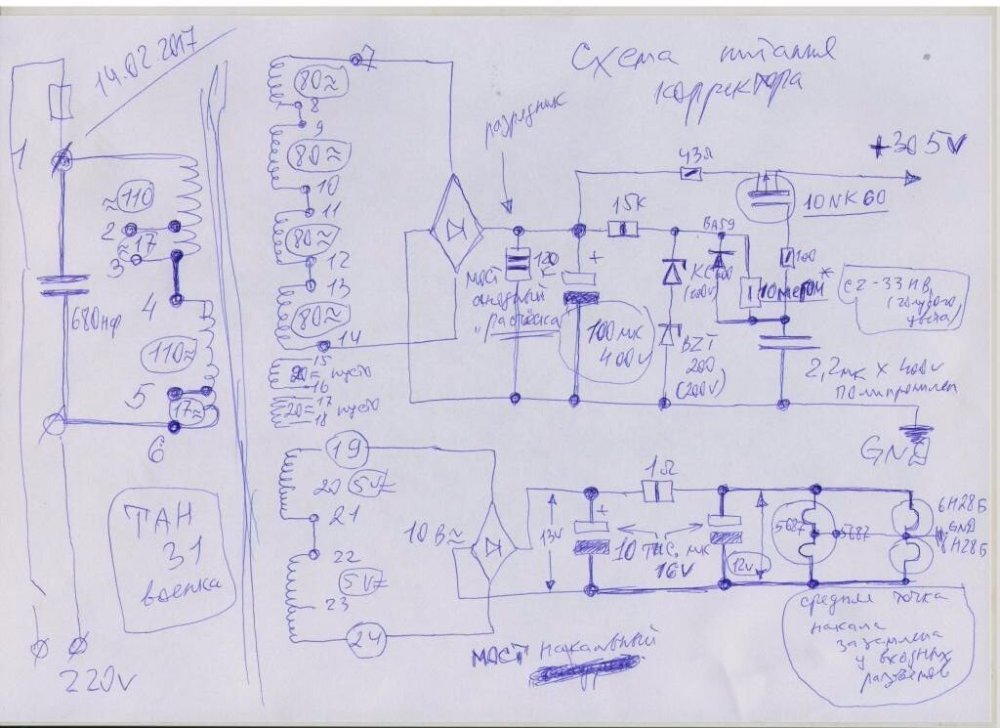 14.02.2017
Схема питания
корректора
1
≈110
2
≈17
3
680нф
4
110≈
5
17≈
6
ТАН
31
военка
220v
7
80≈
8
9
80≈
10
11
80≈
12
13
80≈
14
15
20= пусто
16
17
20=
пусто
18
19
20
5V
21
22
5V
23
24
разрядник
мост
анодный
120
К
100мк
400v
43Ω
15К
+305V
10NK60
BA59
100
(200V)
BZT
200
(200V)
10мегом*
С2-33НВ
(голубого
цвета)
2,2мк х 400v
полипропилен
GND
10В≈
13v
1Ω
10 тыс. мк
16V
12v
5687
5687
6Н28Б
GND
6Н28Б
мост накальный
средняя точка
накала
заземлена
у входных
разъемов